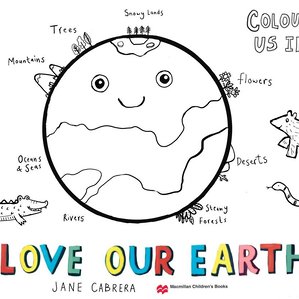 Snowy Lands
COLOU
US I
Trees
Mountains
flowers
Oceans
& Seas
Deserts
Rivers
Steamy
Forests
LOVE OUR EARTH
JANE CABRERA
Macmillan Children's Books